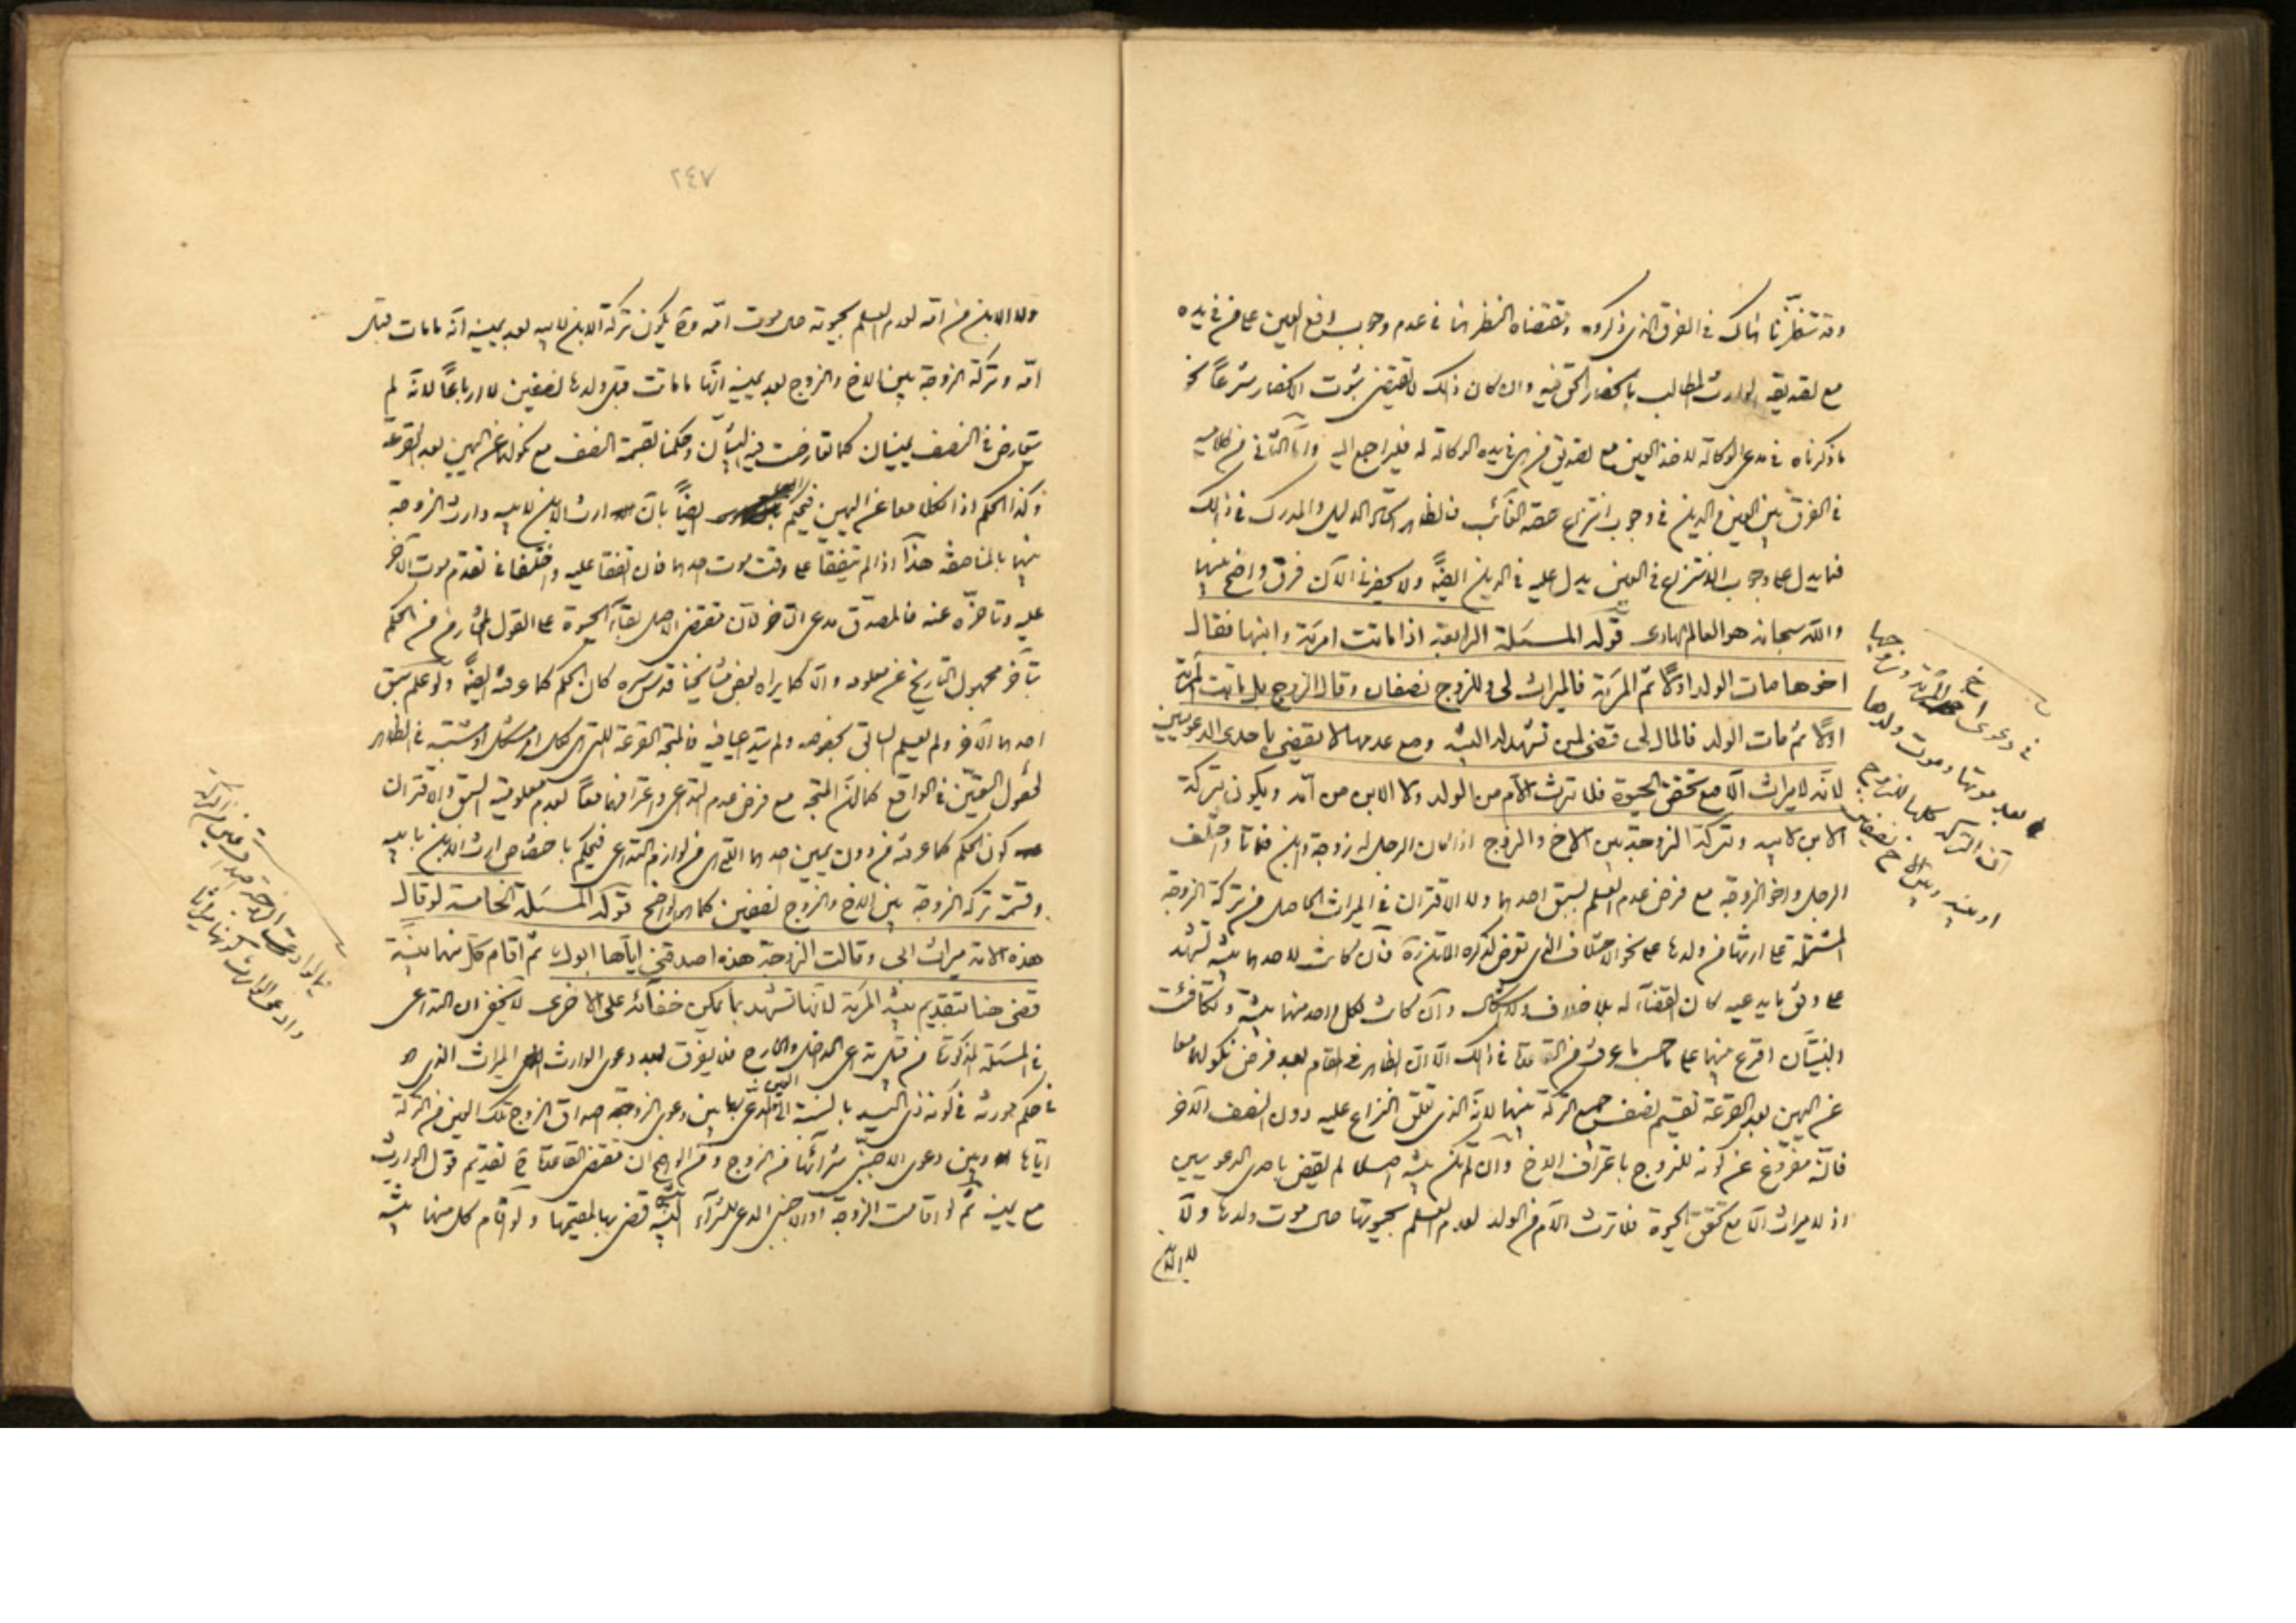 وقد تنظّرنا هناك في الفرق الذي ذكروه ومقتضاه النظر هنا في عدم وجوب دفع العين على من في يده
مع تصديقه الوارث المطالب بانحصار الحق فيه وان كان ذلك لا يقتضي ثبوت الانحصار شرعاً
ما ذكرناه في مدعى الوكالة لاخذ العين مع تصديق من هي في يده الوكالة له فليراجع اليه وامّا الثاني من كلاميه
في الفرق بين العين والدين في وجوب انتزاع حصة الغائب فالظاهر اتحاد الدليل والمدرك في ذلك
فما يدل على وجوب الانتزاع في العين يدل عليه في الدين ايضاً ولا يحضرنى الآن فرق واضح بينهما
والله سبحانه هو العالم الهادى قوله المسئلة الرابعة اذا ماتت امرئة وابنها فقال
اخوها مات الولد اولاً ثم المرئة فالميراث لى وللزوج نصفان وقال الزوج بل ماتت المرئة
اولاً ثم مات الولد فالمال لى قضى لمن تشهد له البينة ومع عدمها لا يقضى باحدى الدعويين
لانه لا ميراث الا مع تحقق الحيوة فلا ترث الام من الولد ولا الابن من امه ويكون تركة
الابن لابيه وتركة الزوجة بين الاخ والزوج اذا كان لرجل زوجة وابن فماتا واختلف
الرجل واخو الزوجة مع فرض عدم العلم بسبق احدهما ولا الاقتران في الميراث الحاصل من تركة الزوجة
المشتملة على ارثها من ولدها على نحو الاختلاف الذى تعرض لذكره الماتن ره فان كانت لاحدهما بينة تشهد
على وفق ما يدعيه كان القضاء له بلا خلاف ولا اشكال وان كانت لكل واحد منهما بينة وتكافئت
البينتان اقرع بينهما على حسب ما عرفت من القاعدة في ذلك الا ان الظاهر في المقام بعد فرض نكولهما معا
عن اليمين بعد القرعة تقسيم نصف جميع التركة بينهما لانه الذى تعلق النزاع عليه دون النصف الآخر
فانّه مفروغ عن كونه للزوج باعتراف الاخ وان لم تكن بينة اصلا لم يقض باحدى الدعويين
اذ لا ميراث الا مع تحقق الحيوة فلا ترث الام من الولد لعدم العلم بحيوتها حال موت ولدها ولا
في دعوى اخ المرئة وزوجها
بعد موتها وموت ولدها
ان التركة كلها للزوج
او بينه وبين الاخ نصفان
ولا الابن
٢٤٧
ولا الابن من امه لعدم العلم بحيوته حال موت امه وح يكون تركة الابن لابيه بعد يمينه انه ما مات قبل
امه وتركة الزوجة بين الاخ والزوج بعد يمينه انها ما ماتت قبل ولدها نصفين لا ارباعاً لانه لم
يتعارض في النصف يمينان كما تعارضت فيه البينتان وحكمنا بقسمة النصف مع نكولهما عن اليمين بعد القرعة
وكذا الحكم اذا نكلا معا عن اليمين فيحكم ايضاً بان ارث الابن لابيه وارث الزوجة
بينهما بالمناصفة هذا اذا لم يتفقا على وقت موت احدهما فان اتفقا عليه واختلفا في تقدم موت الآخر
عليه وتاخره عنه فالمصدق مدعى التاخر لان مقتضى الاصل بقاء الحيوة على القول المختار من الحكم
بتأخر مجهول التاريخ عن معلومه والا كما يراه بعض مشايخنا قدس سره كان الحكم كما عرفته ايضاً ولو علم سبق
احدهما الآخر ولم يعلم السابق بخصوصه ولم يتداعيا فيه فالمتجه القرعة للتى هي لكل امر مشكل او مشتبه في الظاهر
لحصول التعيّن في الواقع كما ان المتجه مع فرض عدم التداعى واعترافهما معاً بعدم معلومية السبق والاقتران
كون الحكم كما عرفته من دون يمين احدهما التى هى من لوازم التداعى فيحكم باختصاص ارث الابن بابيه
وقسمة تركة الزوجة بين الاخ والزوج نصفين كما هو واضح قوله المسئلة الخامسة لو قال
هذه الامة ميراث ابى وقالت الزوجة هذه اصدقنى اياها ابوك ثم اقام كل منهما بينة
قضى هنا بتقديم بينة المرئة لانها تشهد بما يمكن خفائه على الاخرى لا يخفى ان التداعى
في المسئلة المذكورة من قبيل تداعى الداخل والخارج فلا يفرق بعد دعوى الوارث الميراث الذى هو
في حكم مورثه في كونه ذى اليد بالنسبة الى العين المدعى بها بين دعوى الزوجة صداق الزوج تلك العين من التركة
اياها وبين دعوى الاجنبى شرائها من الزوج ومن الواضح ان مقتضى القاعدة ح تقديم قول الوارث
مع يمينه ثم لو اقامت الزوجة او الاجنبى المدعى للشراء البينة قضى بها لمقيمها ولو اقام كل منهما بينة
فيما لو ادعت الزوجة
وادعى الوارث كونها ميراثا